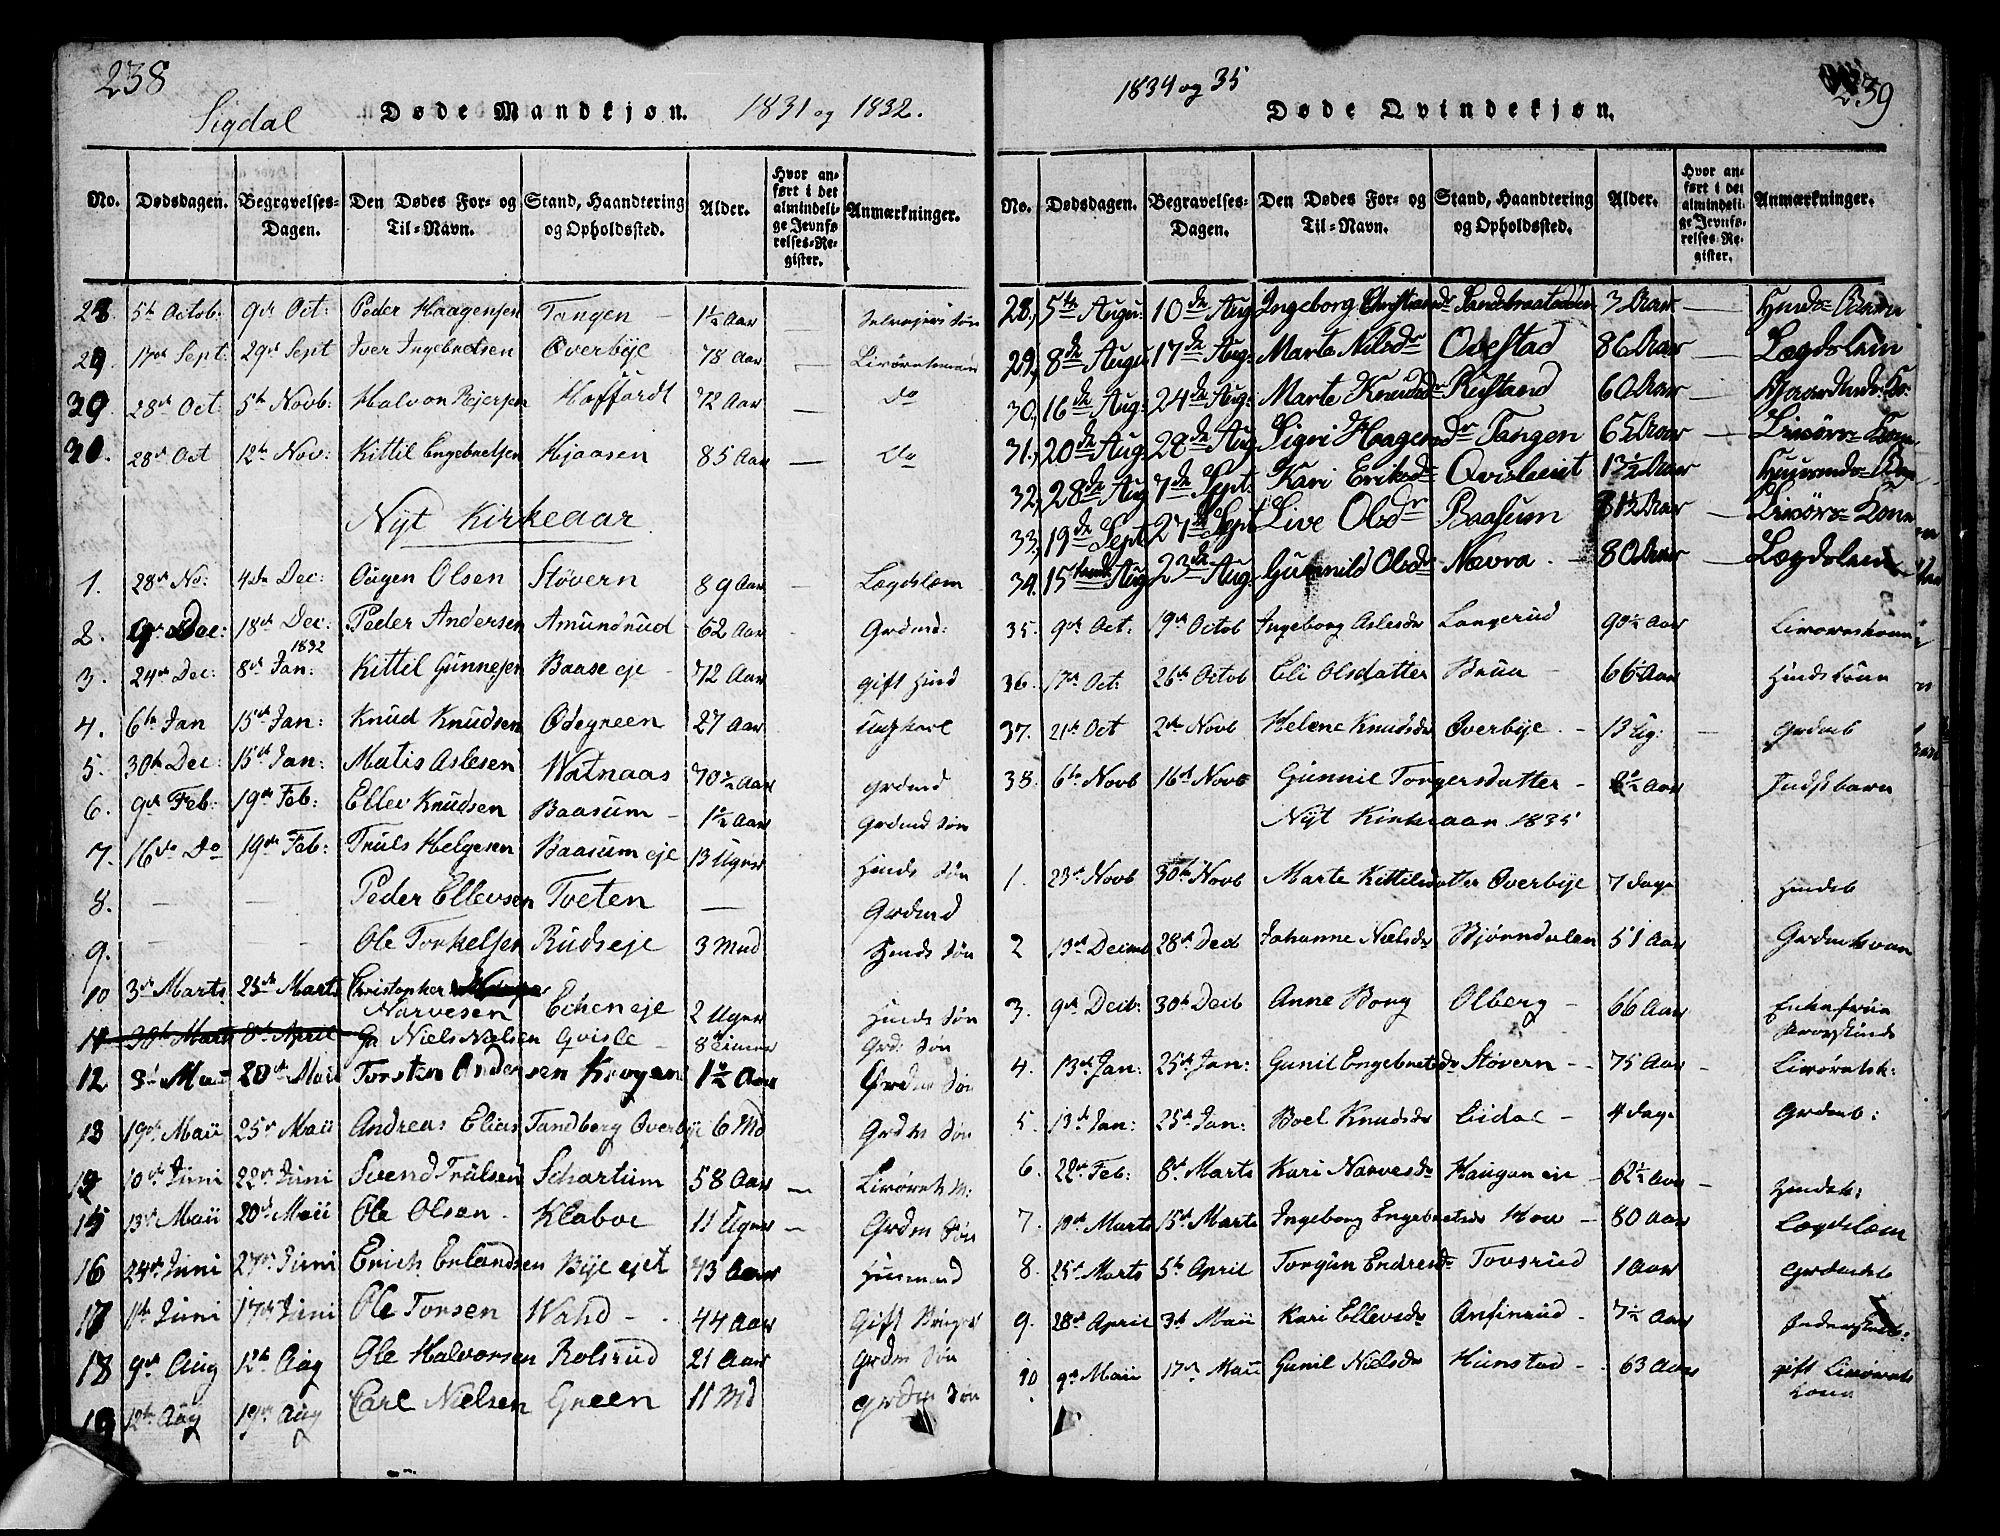 238
Sigdal
Døde Mandkjøn. 1831 og 1832.
No. Dødsdagen. Begravelses-Dagen. Den Dødes For- og Til-Navn. Stand, Haandtering og Opholdssted. Alder. Hvor anført i det almindelige Jevnførelses-Register. Anmærkninger.
28. 5te Octob: 9de Oct: Peder Haagensen Tangen 1½ Aar Selvejers Søn
29 17de Sept: 29de Sept Iver Ingebretsen Overbye 78 Aar Livøretsmand
29. 28de Oct 5te Novb: Halvon Hoffardt 72 Aar Do
30. 28de Oct 12te Nov: Kittil Engebretsen Kjaasen 85 Aar Do
Nyt Kirkeaar
1. 28de No: 4de Dec: Aagen Olsen Støvern 89 Aar Lægdslem
2. 9de Dec: 18de Dec: Peder Andersen Amundrud 62 Aar Grdmd:
3. 24de Dec: 8de Jan: 1832 Kittil Gunnesen Baase eje 72 Aar gift Hmd
4. 6te Jan 15de Jan: Knud Knudsen Ødegreen 27 Aar ungkarl
5. 30te Dec: 15de Jan: Matis Aslesen Watnaas 70½ Aar Grdmd
6. 9de Feb: 19de Feb: Ellev Knudsen Baasum 1½ Aar Grdmd Søn
7. 16de Do 19de Feb: Truls Helgesen Baasum eje 13 Uger Hmds Søn
8. Peder Ellevsen Toeten Grdmd
9. Ole Torkelsen Rudseje 3 Mnd Hmds Søn
10 3de Marts 25de Marts Christopher Narvesen Echeneje 2 Uger Hmds Søn
11 30te Marts 8de April Niels Nielsen Qvisle 8 Timer Grd: Søn
12 3de Maii 20de Maii Torsten Andersen Krogen 1½ Aar Grdm Søn
13 19de Maii 25de Maii Andreas Elias Tandberg Overbye 6 Md Grdm Søn
10de Juni 22de Juni Svend Trulsen Schartum 58 Aar Livørets M:
15 13de Maii 20de Maii Ole Olsen Klaboe 11 Uger Grdm Søn
16 24de Juni 27de Juni Erich Erlandsen Bye ejet 43 Aar Husmand
17 1te Juni 17de Juni Ole Torsen Wahd 44 Aar Gift
18 9de Aug 12te Aug Ole Halvorsen Rolsrud 21 Aar Grdm Søn
19 12te Aug 19de Aug Carl Nielsen Green 11 Md Grdm Søn
239
1834 og 35
Døde Qvindekjøn.
No. Dødsdagen. Begravelses-Dagen. Den Dødes For- og Til-Navn. Stand, Haandtering og Opholdssted. Alder. Hvor anført i det almindelige Jevnførelses-Register. Anmærkninger.
28, 5te Augu: 10de Aug Ingeborg Christiansdr 3 Aar
29, 8de Augu 17de Aug: Marte Nilsdr Ovestad 86 Aar Lægdslem
30, 16de Aug: 24de Aug: Marte Knudsdr Rustand 60 Aar
31, 20de Aug: 28de Aug Sigri Haagensdr Tangen 65 Aar Livørs=Kone
32, 28de Aug 7de Sept: Kari Eriksdr 1½ Aar
33, 19de Sept 27de Sept Live Olsdr Baasum 81½ Aar Livørs=Kone
34. 15 Aug 23de Aug: Gunnild Olsdr Nævra 80 Aar Lægdslem
35. 9de Oct: 19de Octob Ingeborg Aslesdr Langerud 90½ Aar Livøretskone
36. 17de Oct: 26de Octob Eli Olsdatter Brua 66½ Aar Hmds kone
37. 21de Oct 2de Novb Helene Knudsdr Overbye 13 Ug: Grdmb
38. 6te Novb 16de Novb Gunnil Torgersdatter 2½ Aar Indstbarn
Nyt Kirkeaar 1835
1. 23de Novb 30te Novb Marte Kittilsdatter Overbye 7 Dage Hmdsb
2 13de Decmb 28de Decb Johanne Nielsdr Bjørndalen 51 Aar Grdmkone
3. 9de Decb: 30te Decb Anne Borg Olberg 66 Aar Enkefrue
4. 13de Jan: 25de Jan: Gunil Engebretsdr Støvern 75 Aar Livøretsk:
5. 13de Jan: 25de Jan: Boel Knudsdr Eidal 4 Dage Grdmb:
6. 22de Feb: 8de Marts Kari Narvesdr Haugan eje 62½ Aar Hmdsk:
7. 10de Marts 15de Marts Ingeborg Engebretsdr Hou 80 Aar Lægdslem
8. 25de Marts 5te April Torgun Endresdr Tovsrud 1 Aar
9. 28de April 3de Maii Kari Ellevsdr Anfinrud 7½ Aar
10 9de Maii 17de Maii Gunil Nielsdr Hunstad 63 Aar gift Livørets kone